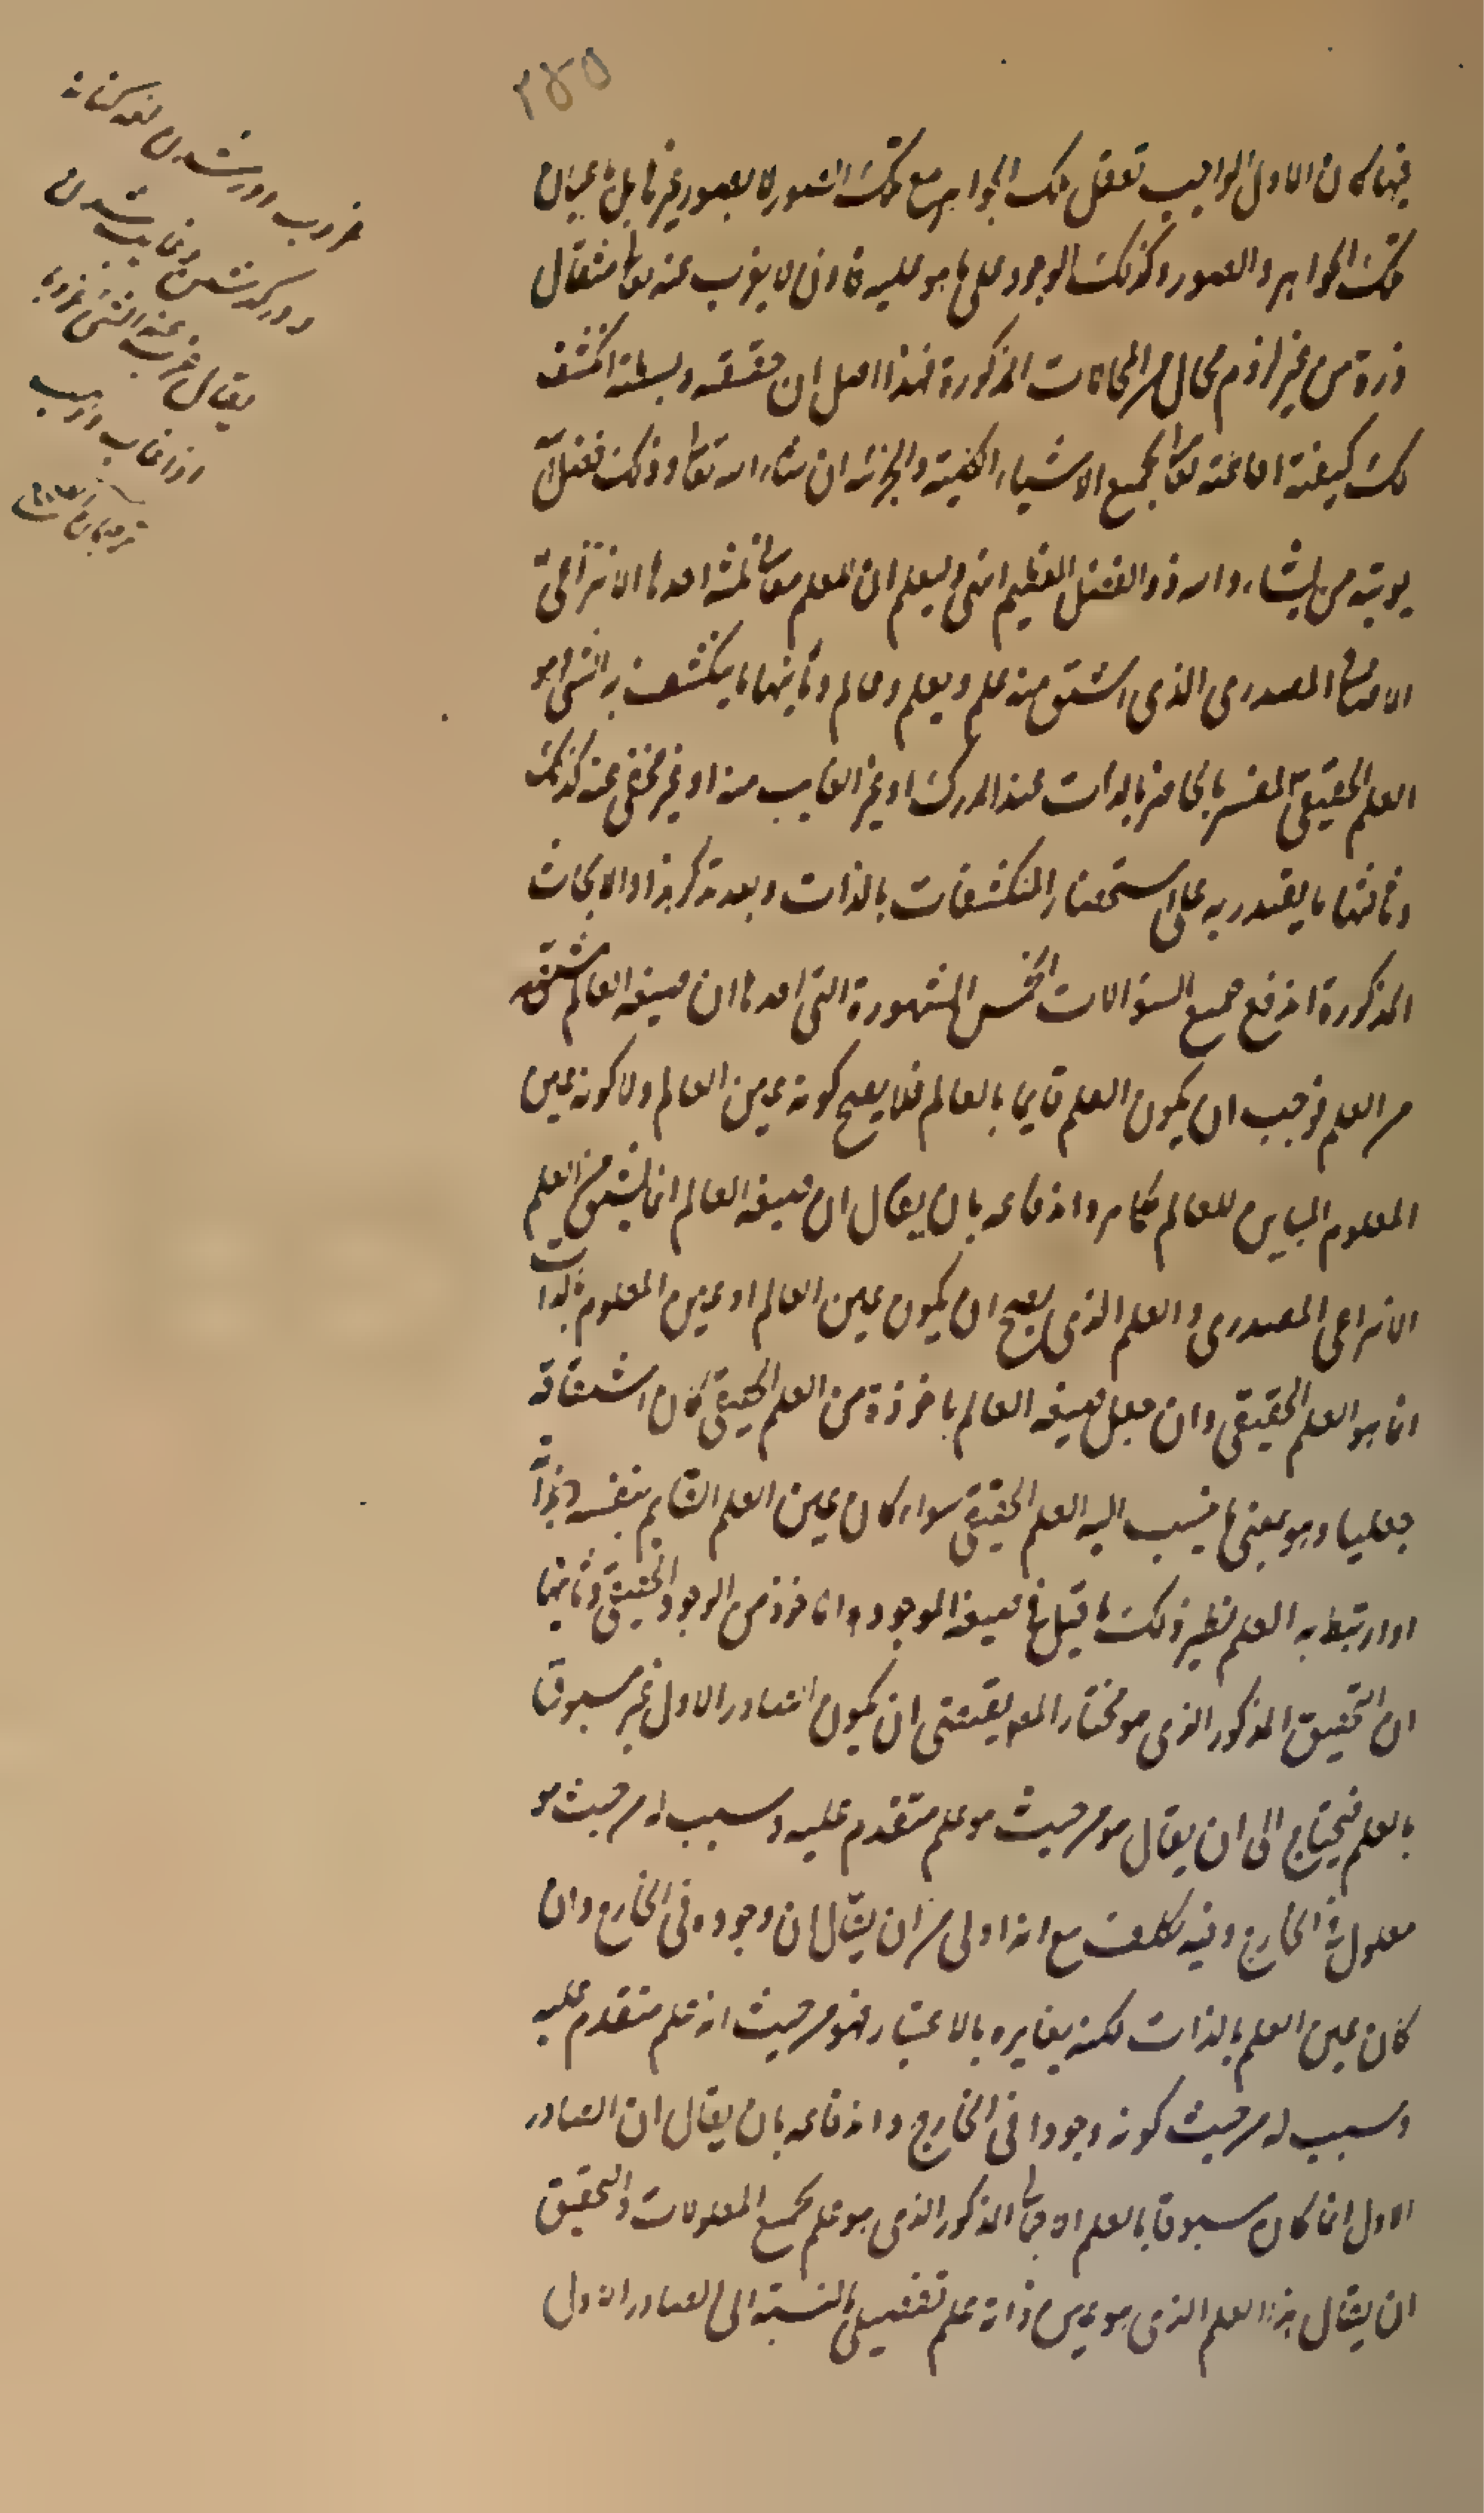 ٢٥٥
فيها كان الاول الواجب تعقل تلك الجواهر مع تلك الصور لا بصور غيرها بل باعيان
تلك الجواهر والصور وكذلك الوجود على ما هو عليه فاذن لا يعزب عنه تعالى مثقال
ذرة من غير لزوم محال من المحالات المذكورة فهذا اصل ان حققته وبسطته انكشف
لك كيفية احاطته تعالى بجميع الاشياء الكلية والجزئية ان شاء الله تعالى وذلك فضل الله
يوتيه من يشاء والله ذو الفضل العظيم انتهى وليعلم ان للعلم معاني ثلثة احدها الانتزاعي
الاضافي المصدري الذي اشتق منه علم ويعلم وعالم وثانيها ما ينكشف به الشئ وهو
العلم الحقيقي المفسر بالحاضر بالذات عند المدرك او غير الغايب عنه او غير مخفي عنه كذلك
وثالثها ما يقتدر به على استحضار المنكشفات بالذات وبعد تذكر هذا والابحاث
المذكورة اندفع جميع السؤالات الخمس المشهورة التي احدها ان صيغة العالم مشتقة
من العلم فوجب ان يكون العلم قايما بالعالم فلا يصح كونه عين العالم ولا كونه عين
المعلوم المباين للعالم كما مر واندفاعه بان يقال ان صيغة العالم انما يشتق من العلم
الانتزاعي المصدري والعلم الذي يصح ان يكون عين العالم او عين المعلوم بالذات
انما هو العلم الحقيقي وان جعل صيغة العالم ماخوذة من العلم الحقيقي كان اشتقاقه
جعليا وهو بمعنى ما ينسب اليه العلم الحقيقي سواء كان عين العلم القايم بنفسه وبذاته
او ارتبط به العلم نظير ذلك ما قيل في صيغة الموجود الماخوذ من الوجود الحقيقي وثانيها
ان التحقيق المذكور الذي هو مختار المص يقتضي ان يكون الصادر الاول غير مسبوق
بالعلم فيحتاج الى ان يقال هو من حيث هو علم متقدم عليه وسبب له من حيث هو
معلول في الخارج وفيه تكلف مع انه اولى من ان يقال ان وجوده في الخارج وان
كان عين العلم بالذات لكنه يغايره بالاعتبار فهو من حيث انه علم متقدم عليه
وسبب له من حيث كونه وجودا في الخارج واندفاعه بان يقال ان الصادر
الاول انما كان مسبوقا بالعلم الاجمالي المذكور الذي هو علم بجميع المعلومات والتحقيق
ان يقال هذا العلم الذي هو عين ذاته علم تفصيلي بالنسبة الى الصادر الاول
عزوب دور شدن
دور گذشتن وغايب شدن
يقال عزب عنه الشئ عزوبا
اذا غاب وذهب